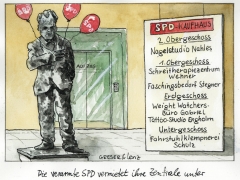 SPD
SPD
SPD
SPD-KAUFHAUS
2. Obergeschoss
Nagelstudio Nahles
1. Obergeschoss
Schreitherapiezentrum
Wehner
Faschingsbedarf Stegner
Erdgeschoss
Weight Watchers-
Büro Gabriel
Tattoo-Studio Engholm
Untergeschoss
Fahrstuhlklempnerei
Schulz
AUFZUG
GRESER & Lenz
Die verarmte SPD vermietet ihre Zentrale unter